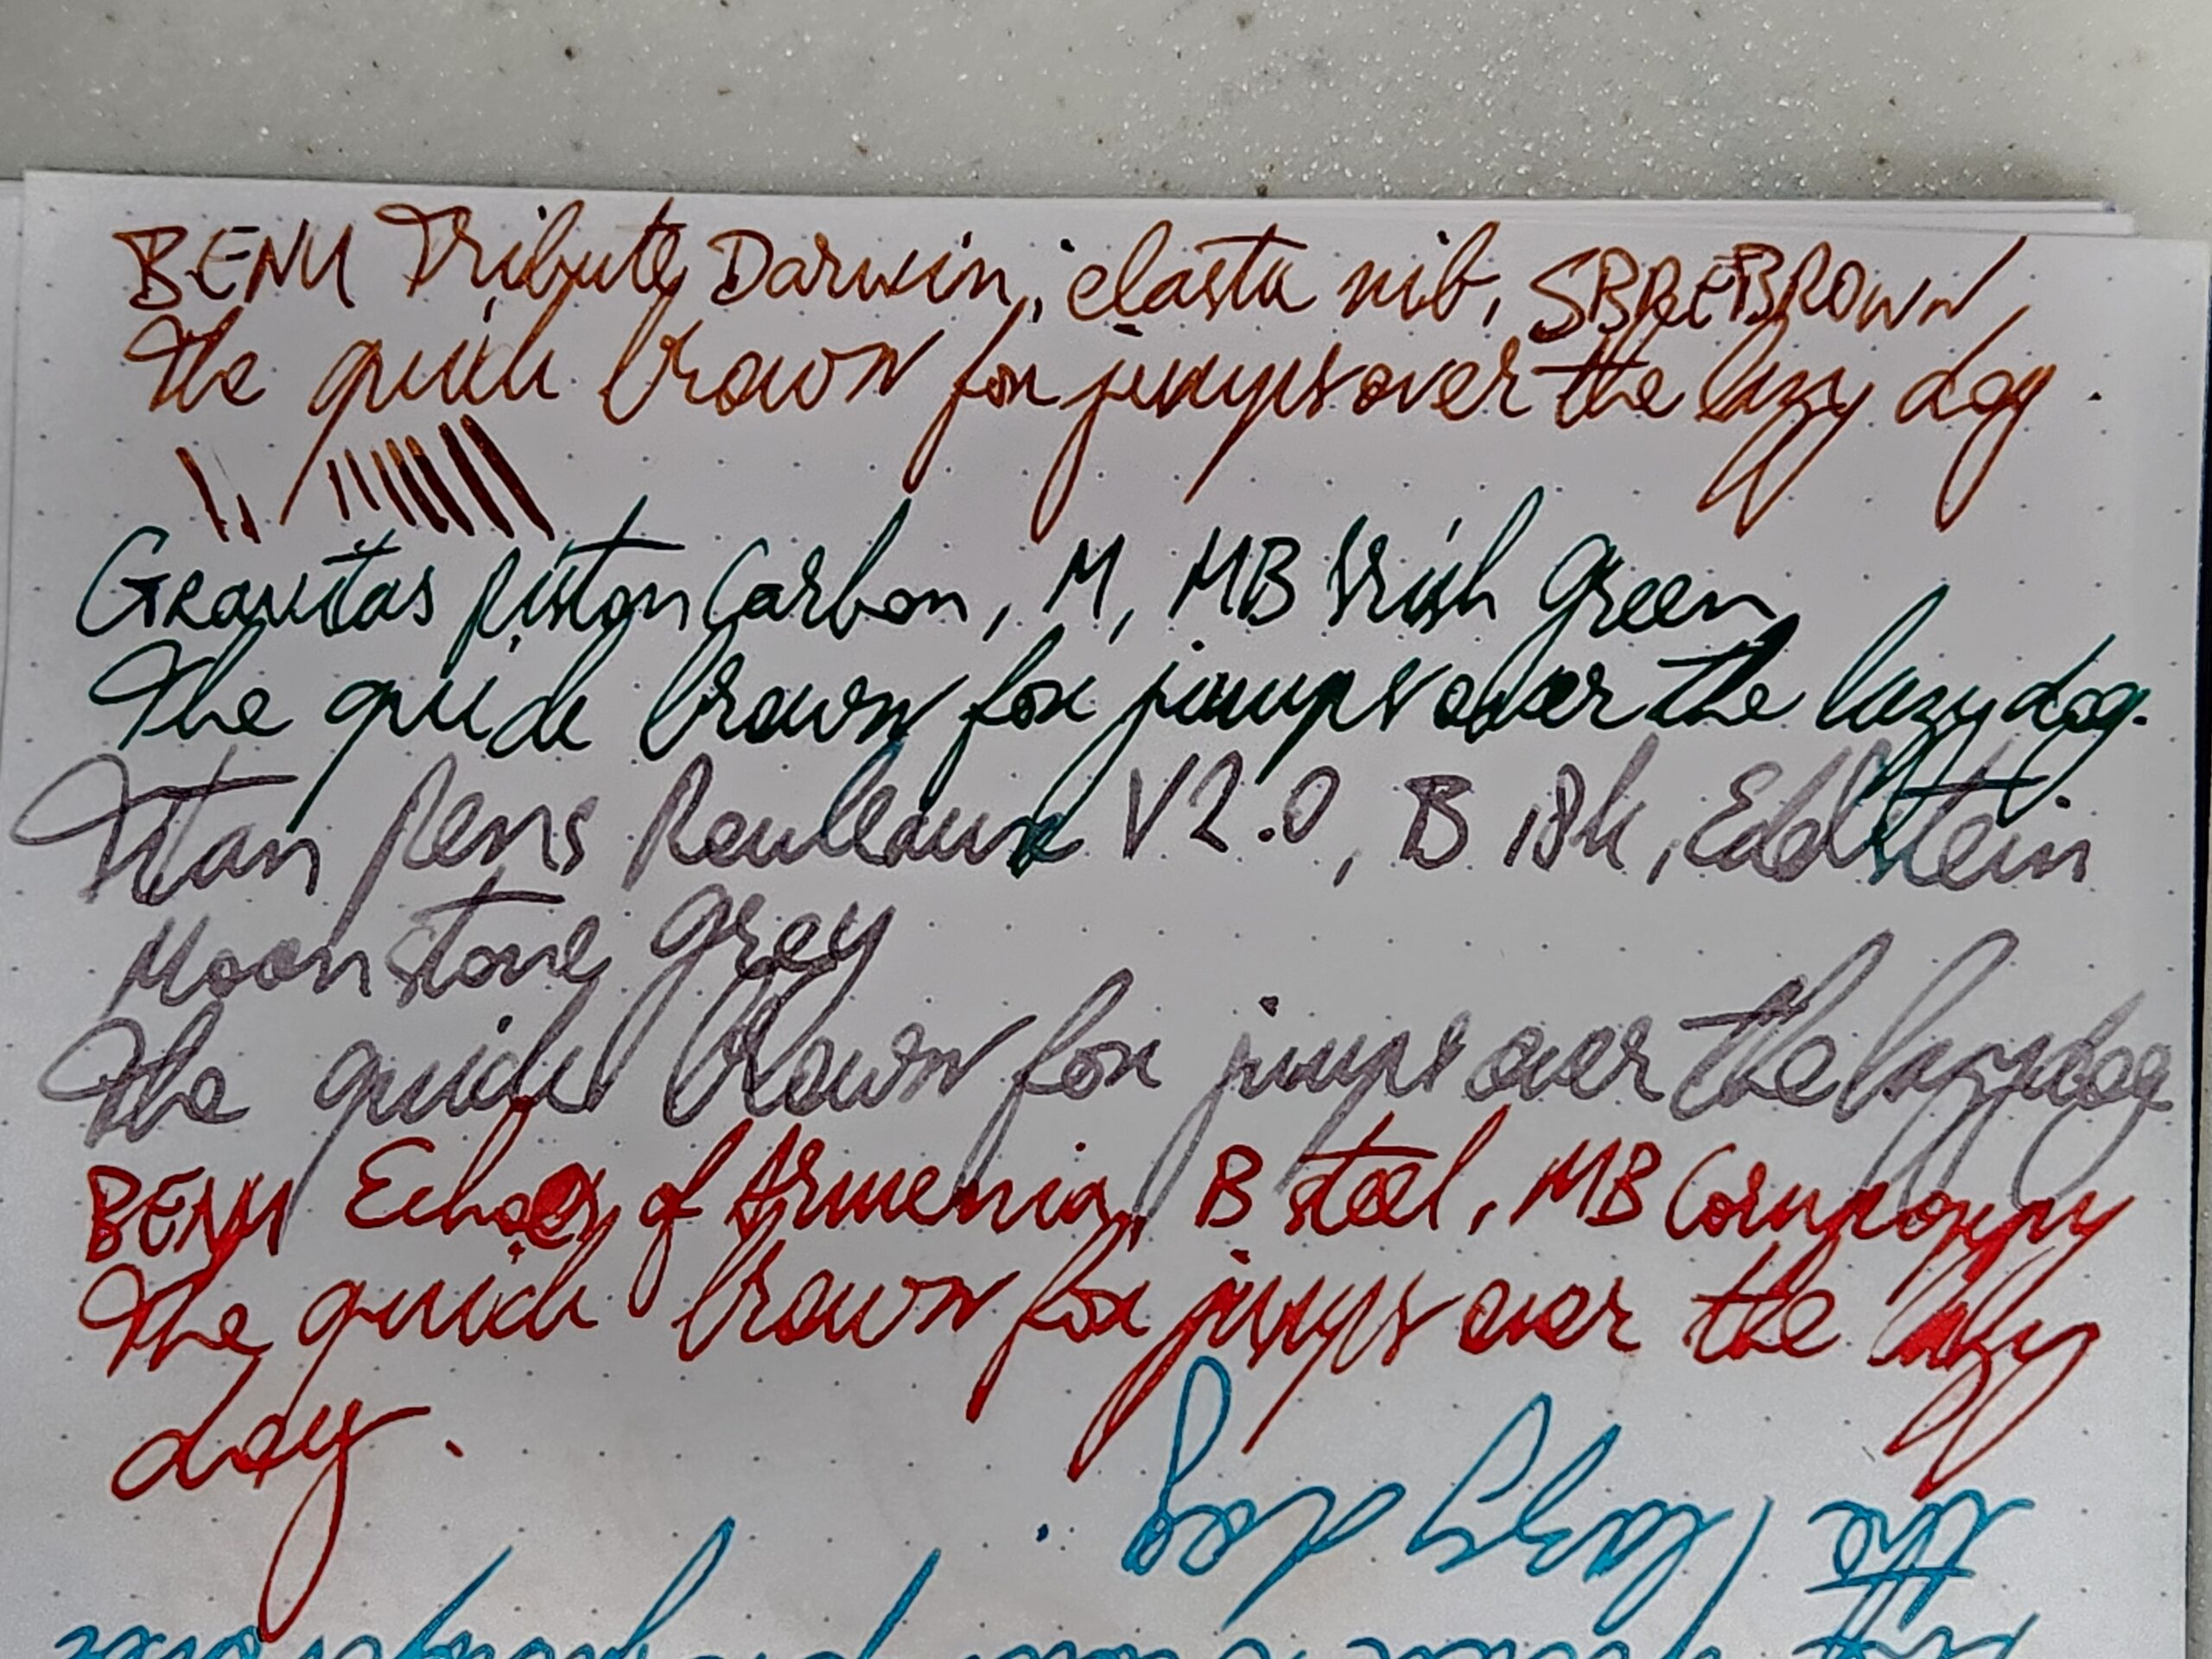 BENU Tribute Darwin, elasta nib, SBREBROWN,
The quick brown fox jumps over the lazy dog.
Gravitas piston Carbon, M, MB Irish Green
The quick brown fox jumps over the lazy dog.
Titan Pens Reuleaux V2.0, B 18k, Edelstein
Moonstone Grey
The quick brown fox jumps over the lazy dog
BENU Echoes of Armenia, B steel, MB Corn poppy
The quick brown fox jumps over the lazy
dog.
the lazy dog.